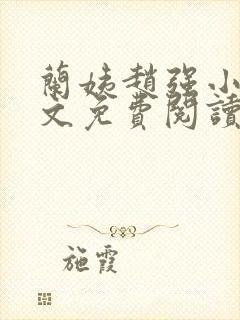 蘭姨趙強小
文免費閱讀
施霞